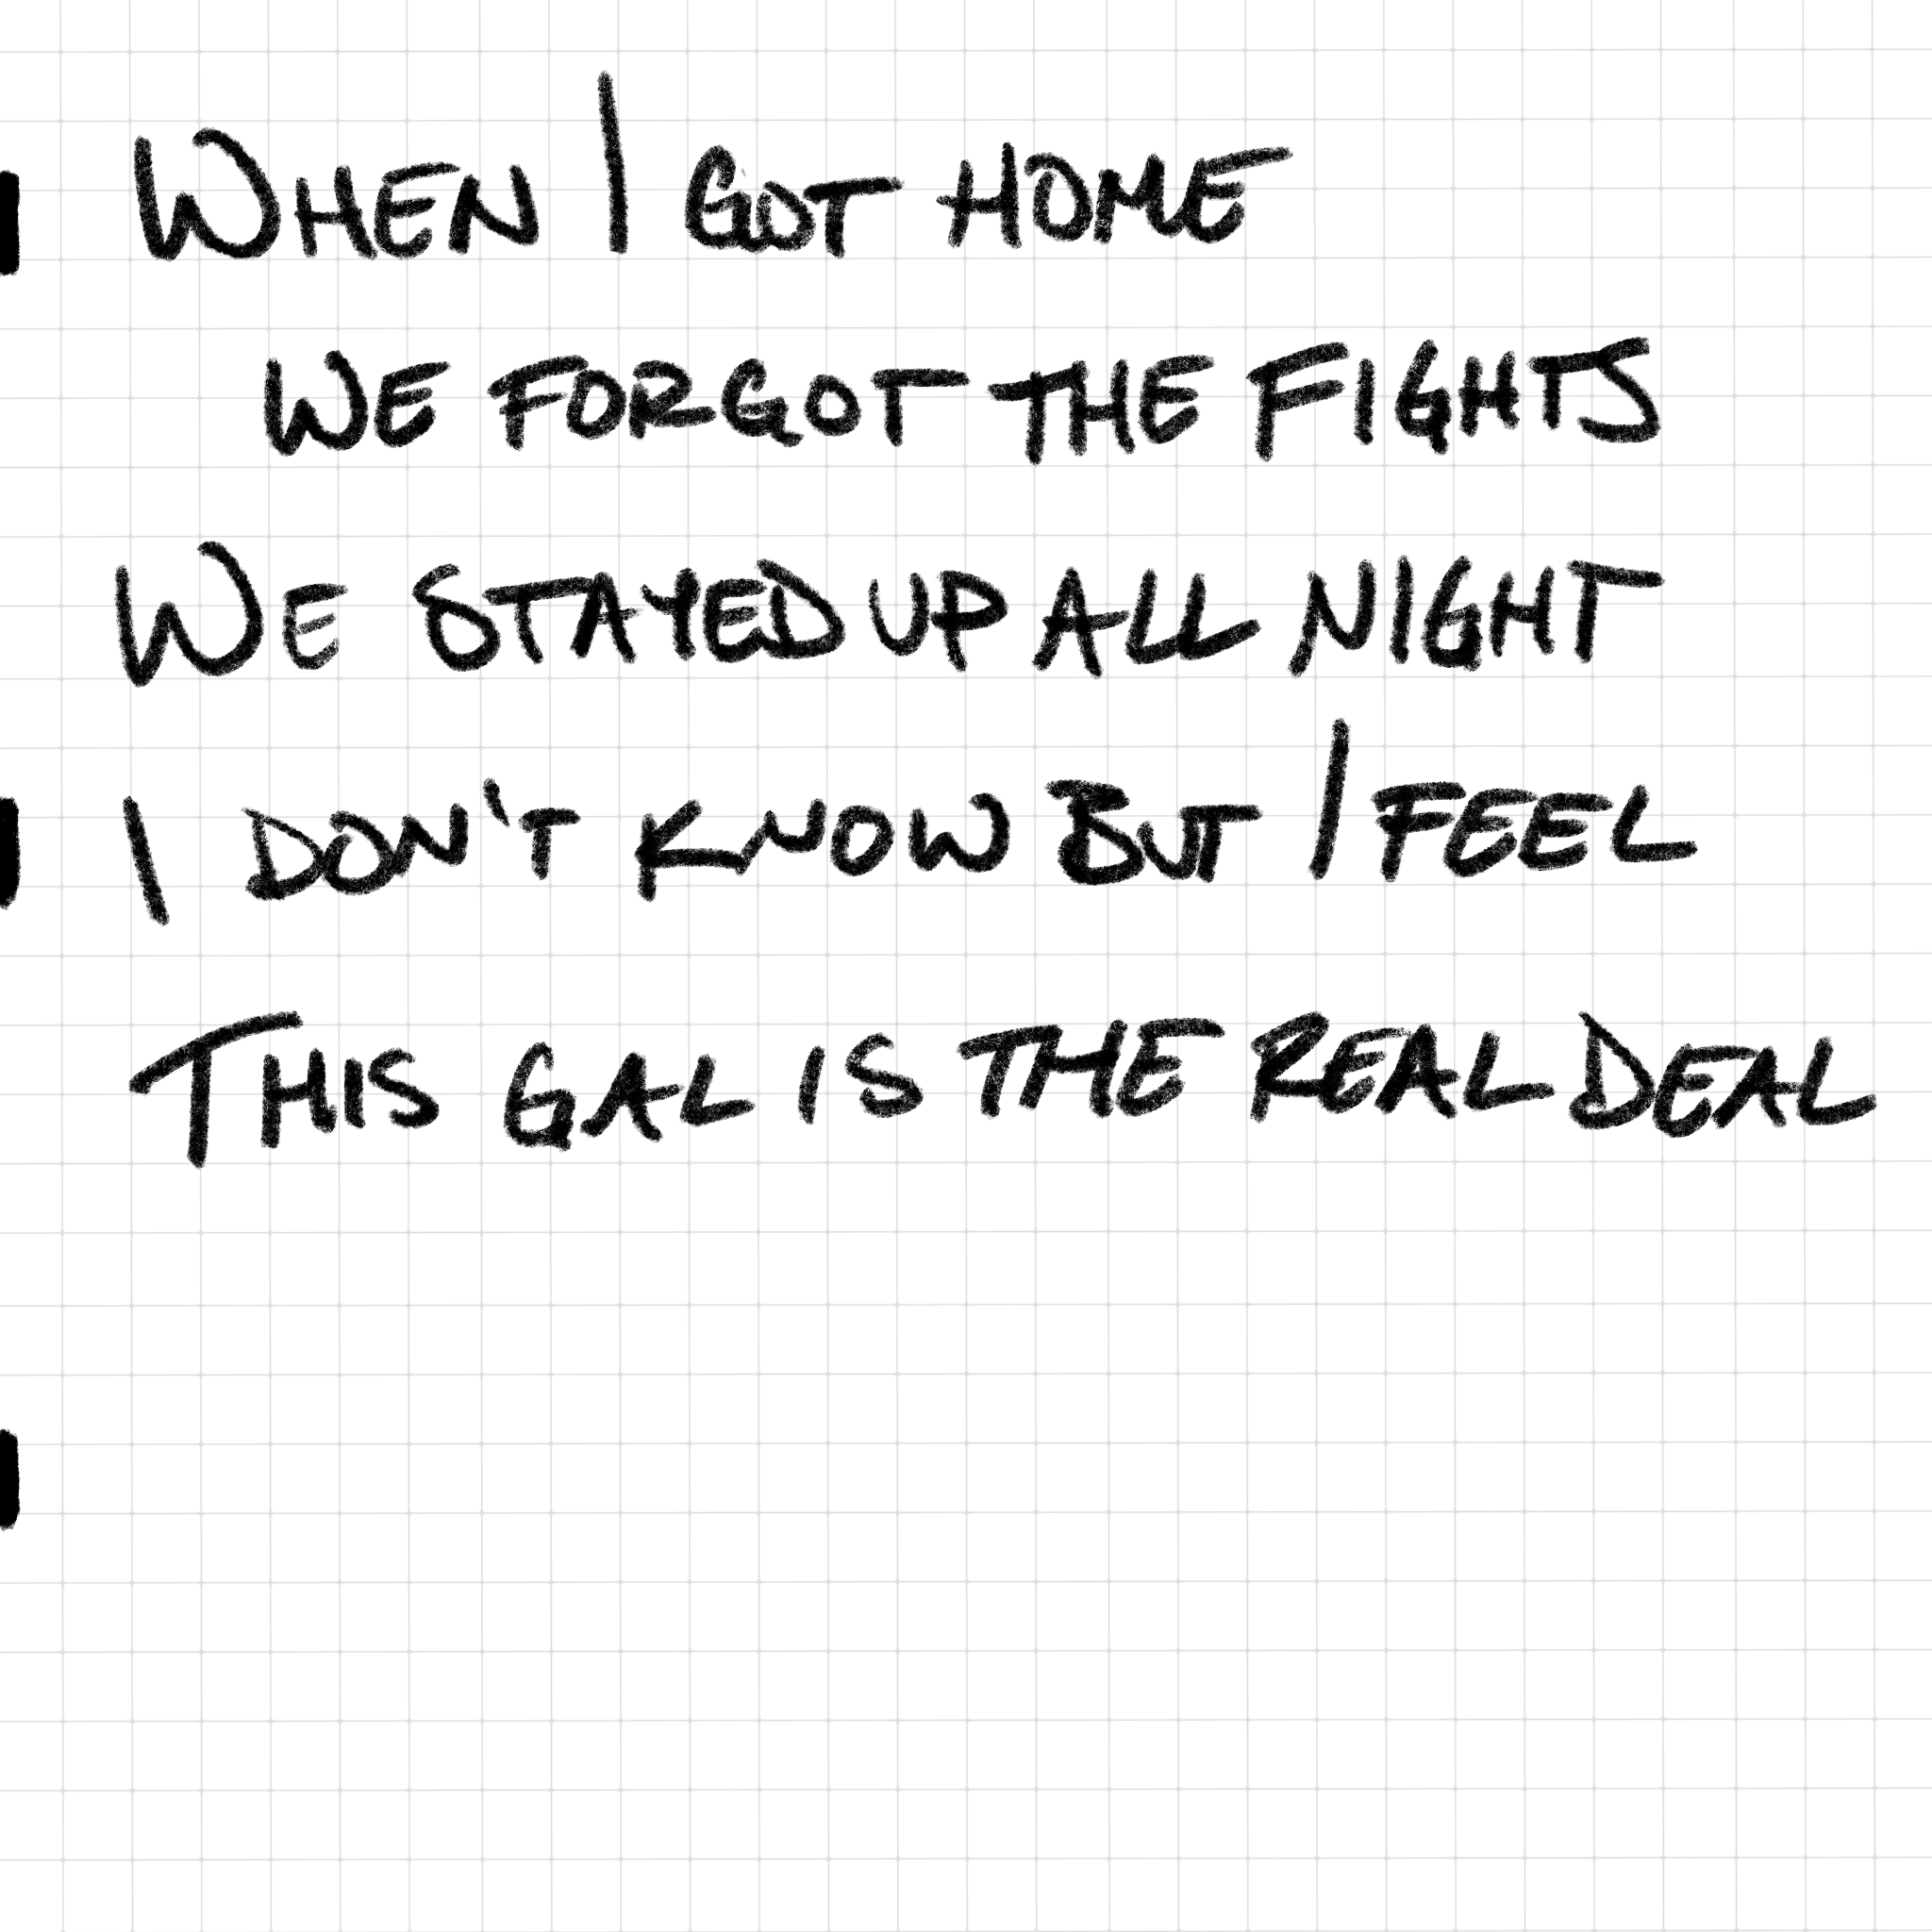 WHEN I GOT HOME
WE FORGOT THE FIGHTS
WE STAYED UP ALL NIGHT
I DON'T KNOW BUT I FEEL
THIS GAL IS THE REAL DEAL